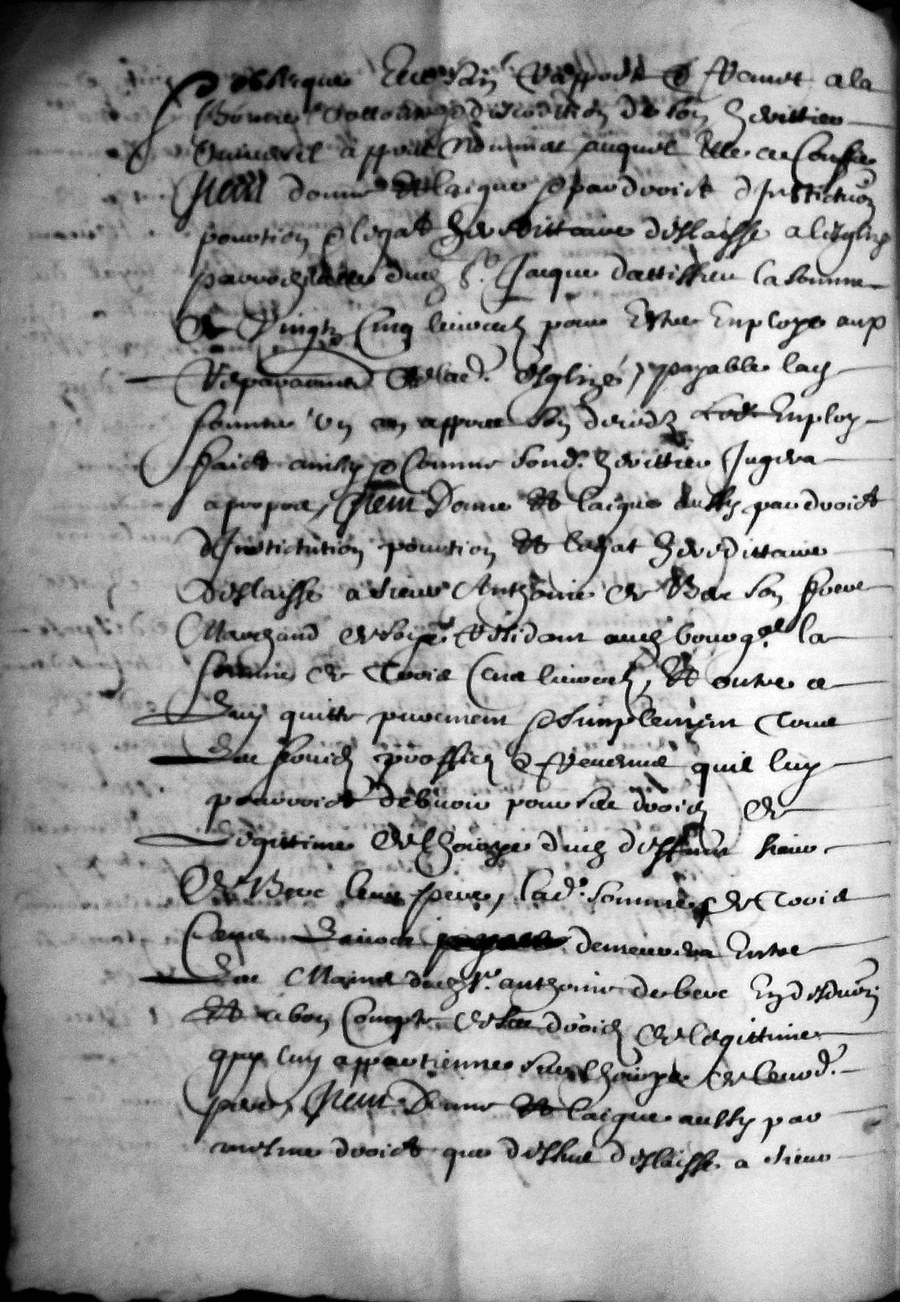 obseques Levesain rapporte & remet a la
et discretion de son herittier
universel appres nommé auquel elle ce Confie
Item donne et laigue & par droict d'Institution
portion & legat hereditaire deslaisse a l'Esglise
parroissialle dud St. Jacque d'attissieu la somme
de Vingt Cinq livres pour Estre Employé aux
reparations de lad. Esglize, payable lad
somme un an appres son decedz Employ
faict ainsy & Comme sond. herittier Jugera
a propos, Item Donne et laigue aussy par droict
d'Institution portion et legat hereditaire
deslaisse a sieur Anthoine de Berc son frere
Marchand de soye residant aud bourg la
somme de Trois Cent livres, et outre ce
Luy quitte purement & simplement tous
Les fruicts proffits & revenus quil luy
pourroict debvoir pour ses droicts de
Legittime de l'hoirye dud deffunt sieur
De Berc leur pere, lad. somme de Trois
Cent Livres demeurera Entre
Les Mains dud sr. anthoine de berc En deduction
et a bon Compte de ses droicts de legittime
quy luy appartiennes sur l'hoirye de leurd.
pere, Item Donne et laigue aussy par
mesme droict que dessus deslaisse a sieur